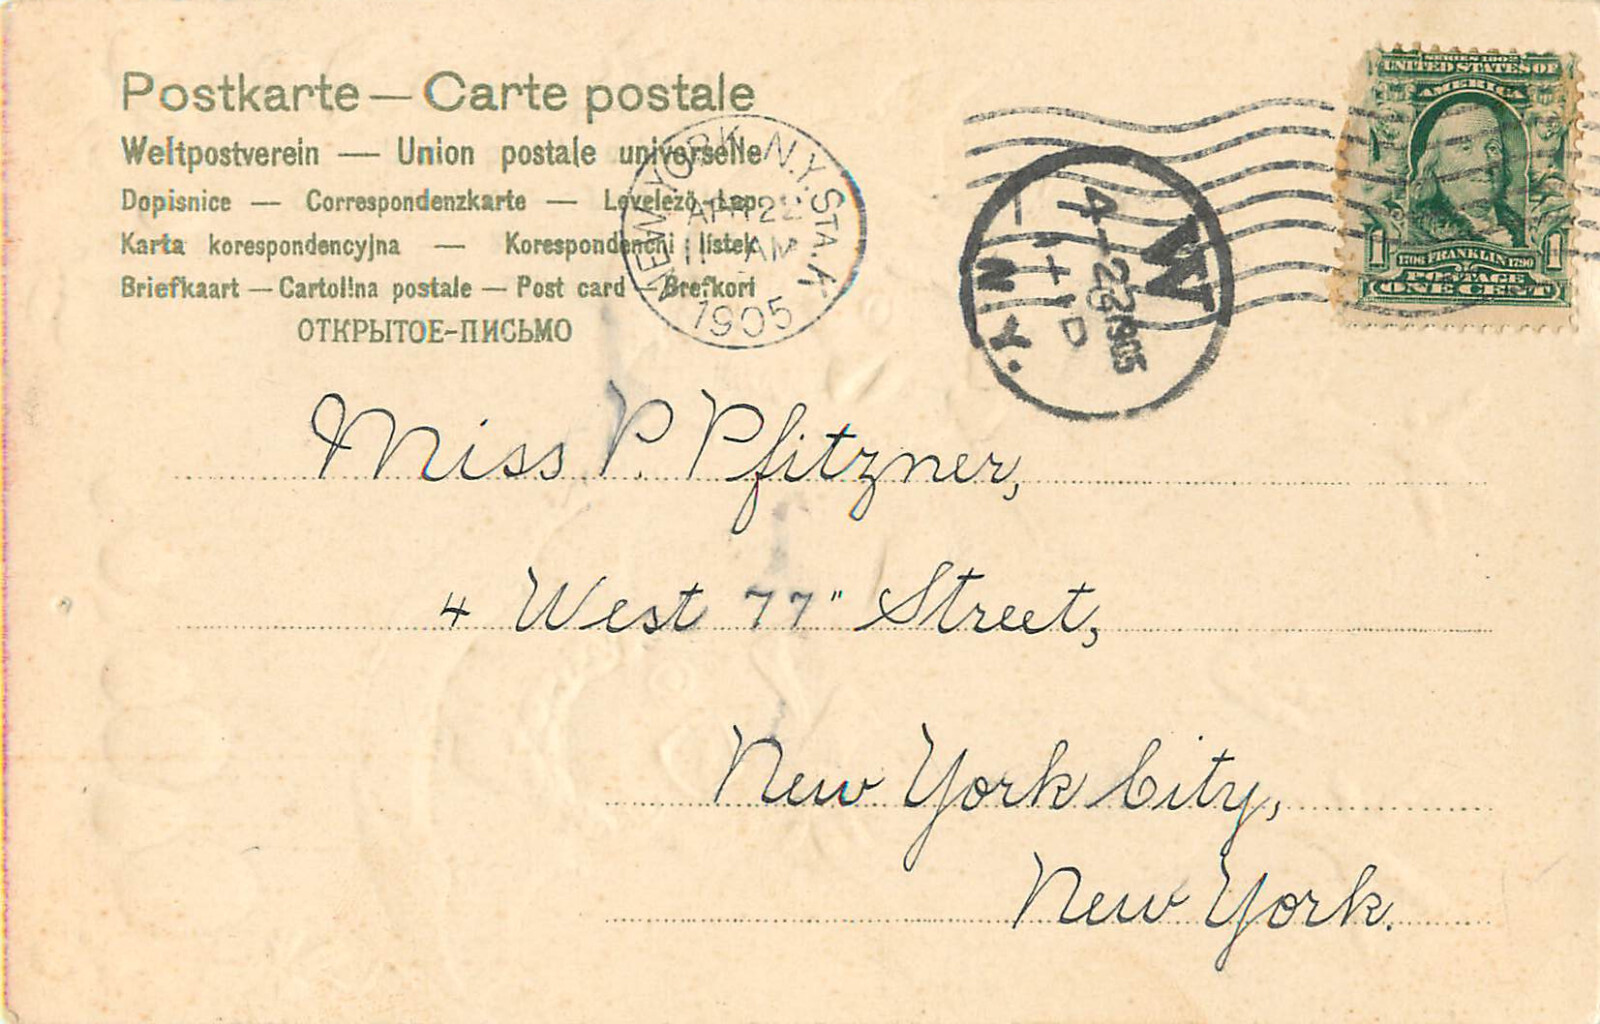 Postkarte — Carte postale
Weltpostverein — Union postale universelle
Dopisnice — Correspondenzkarte — Levelező-Lap
Karta korespondencyjna — Korespondenčni listek
Briefkaart — Cartolina postale — Post card — Brefkort
ОТКРЫТОЕ-ПИСЬМО
NEW YORK, N.Y. STA.
APR 22
11 AM
1905
W
4-22 1905
N.Y.
SERIES 1902
UNITED STATES OF
AMERICA
1706 FRANKLIN 1790
1 POSTAGE 1
ONE CENT
Miss P. Pfitzner,
4 West 77" Street,
New York City,
New York.